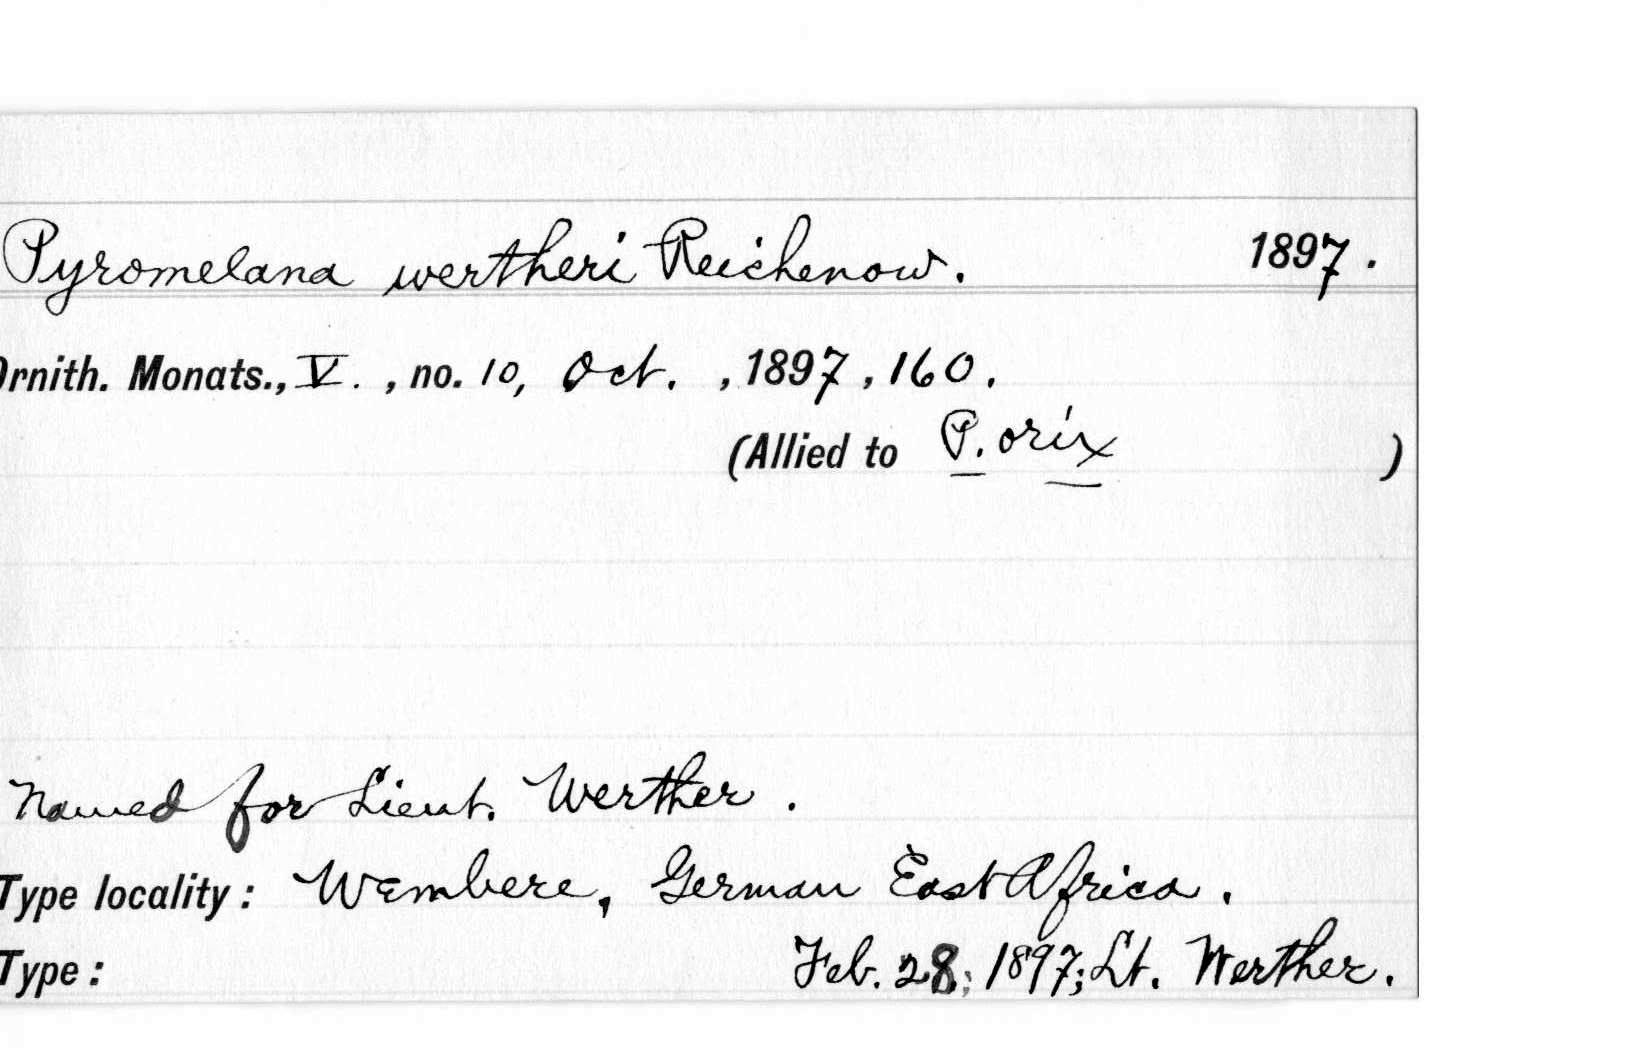 Pyromelana wertheri Reichenow. 1897.
Ornith. Monats., V. , no. 10, Oct. , 1897 , 160.
(Allied to P. orix )
Named for Lieut. Werther .
Type locality : Wembere, German East Africa .
Type : Feb. 28, 1897; Lt. Werther.